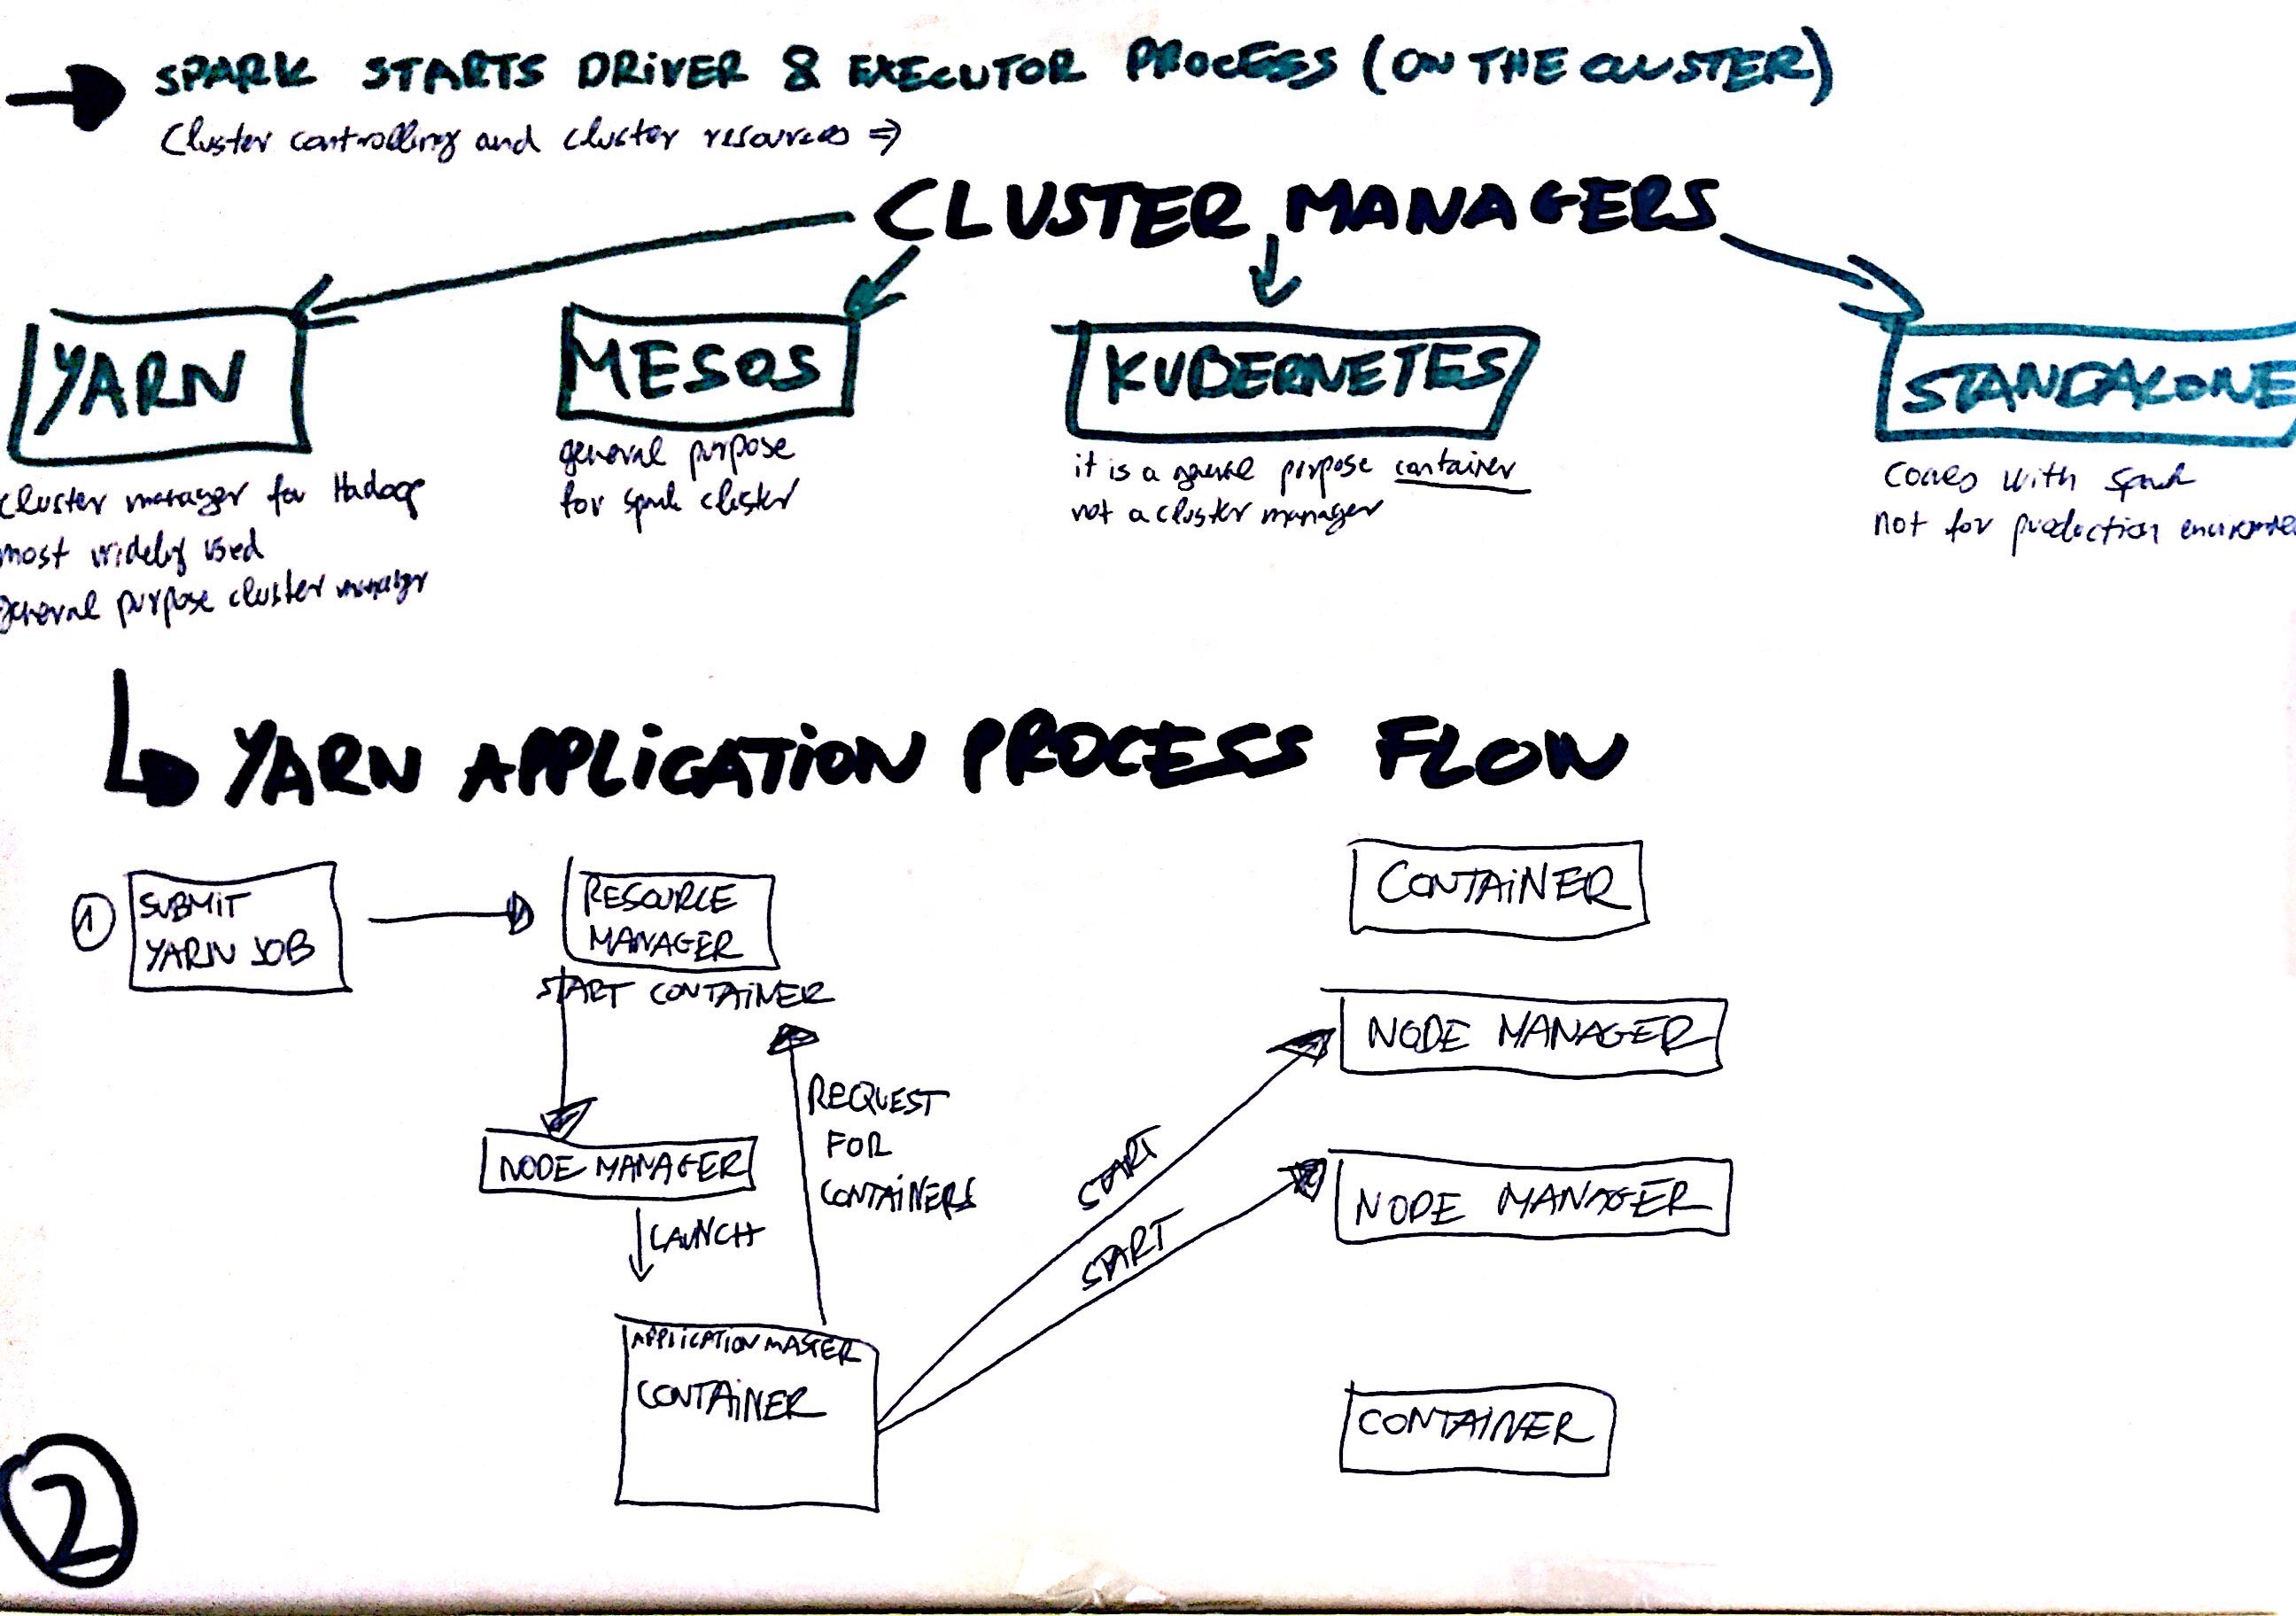 SPARK STARTS DRIVER & EXECUTOR PROCESS (ON THE CLUSTER)
Cluster controlling and cluster resources ⇒
CLUSTER MANAGERS
YARN
cluster manager for Hadoop
most widely used
general purpose cluster manager
MESOS
general purpose
for spark cluster
KUBERNETES
it is a general purpose container
not a cluster manager
STANDALONE
comes with spark
not for production
YARN APPLICATION PROCESS FLOW
1
SUBMIT
YARN JOB
RESOURCE
MANAGER
START CONTAINER
NODE MANAGER
LAUNCH
REQUEST
FOR
CONTAINERS
APPLICATION MASTER
CONTAINER
START
START
CONTAINER
NODE MANAGER
NODE MANAGER
CONTAINER
2